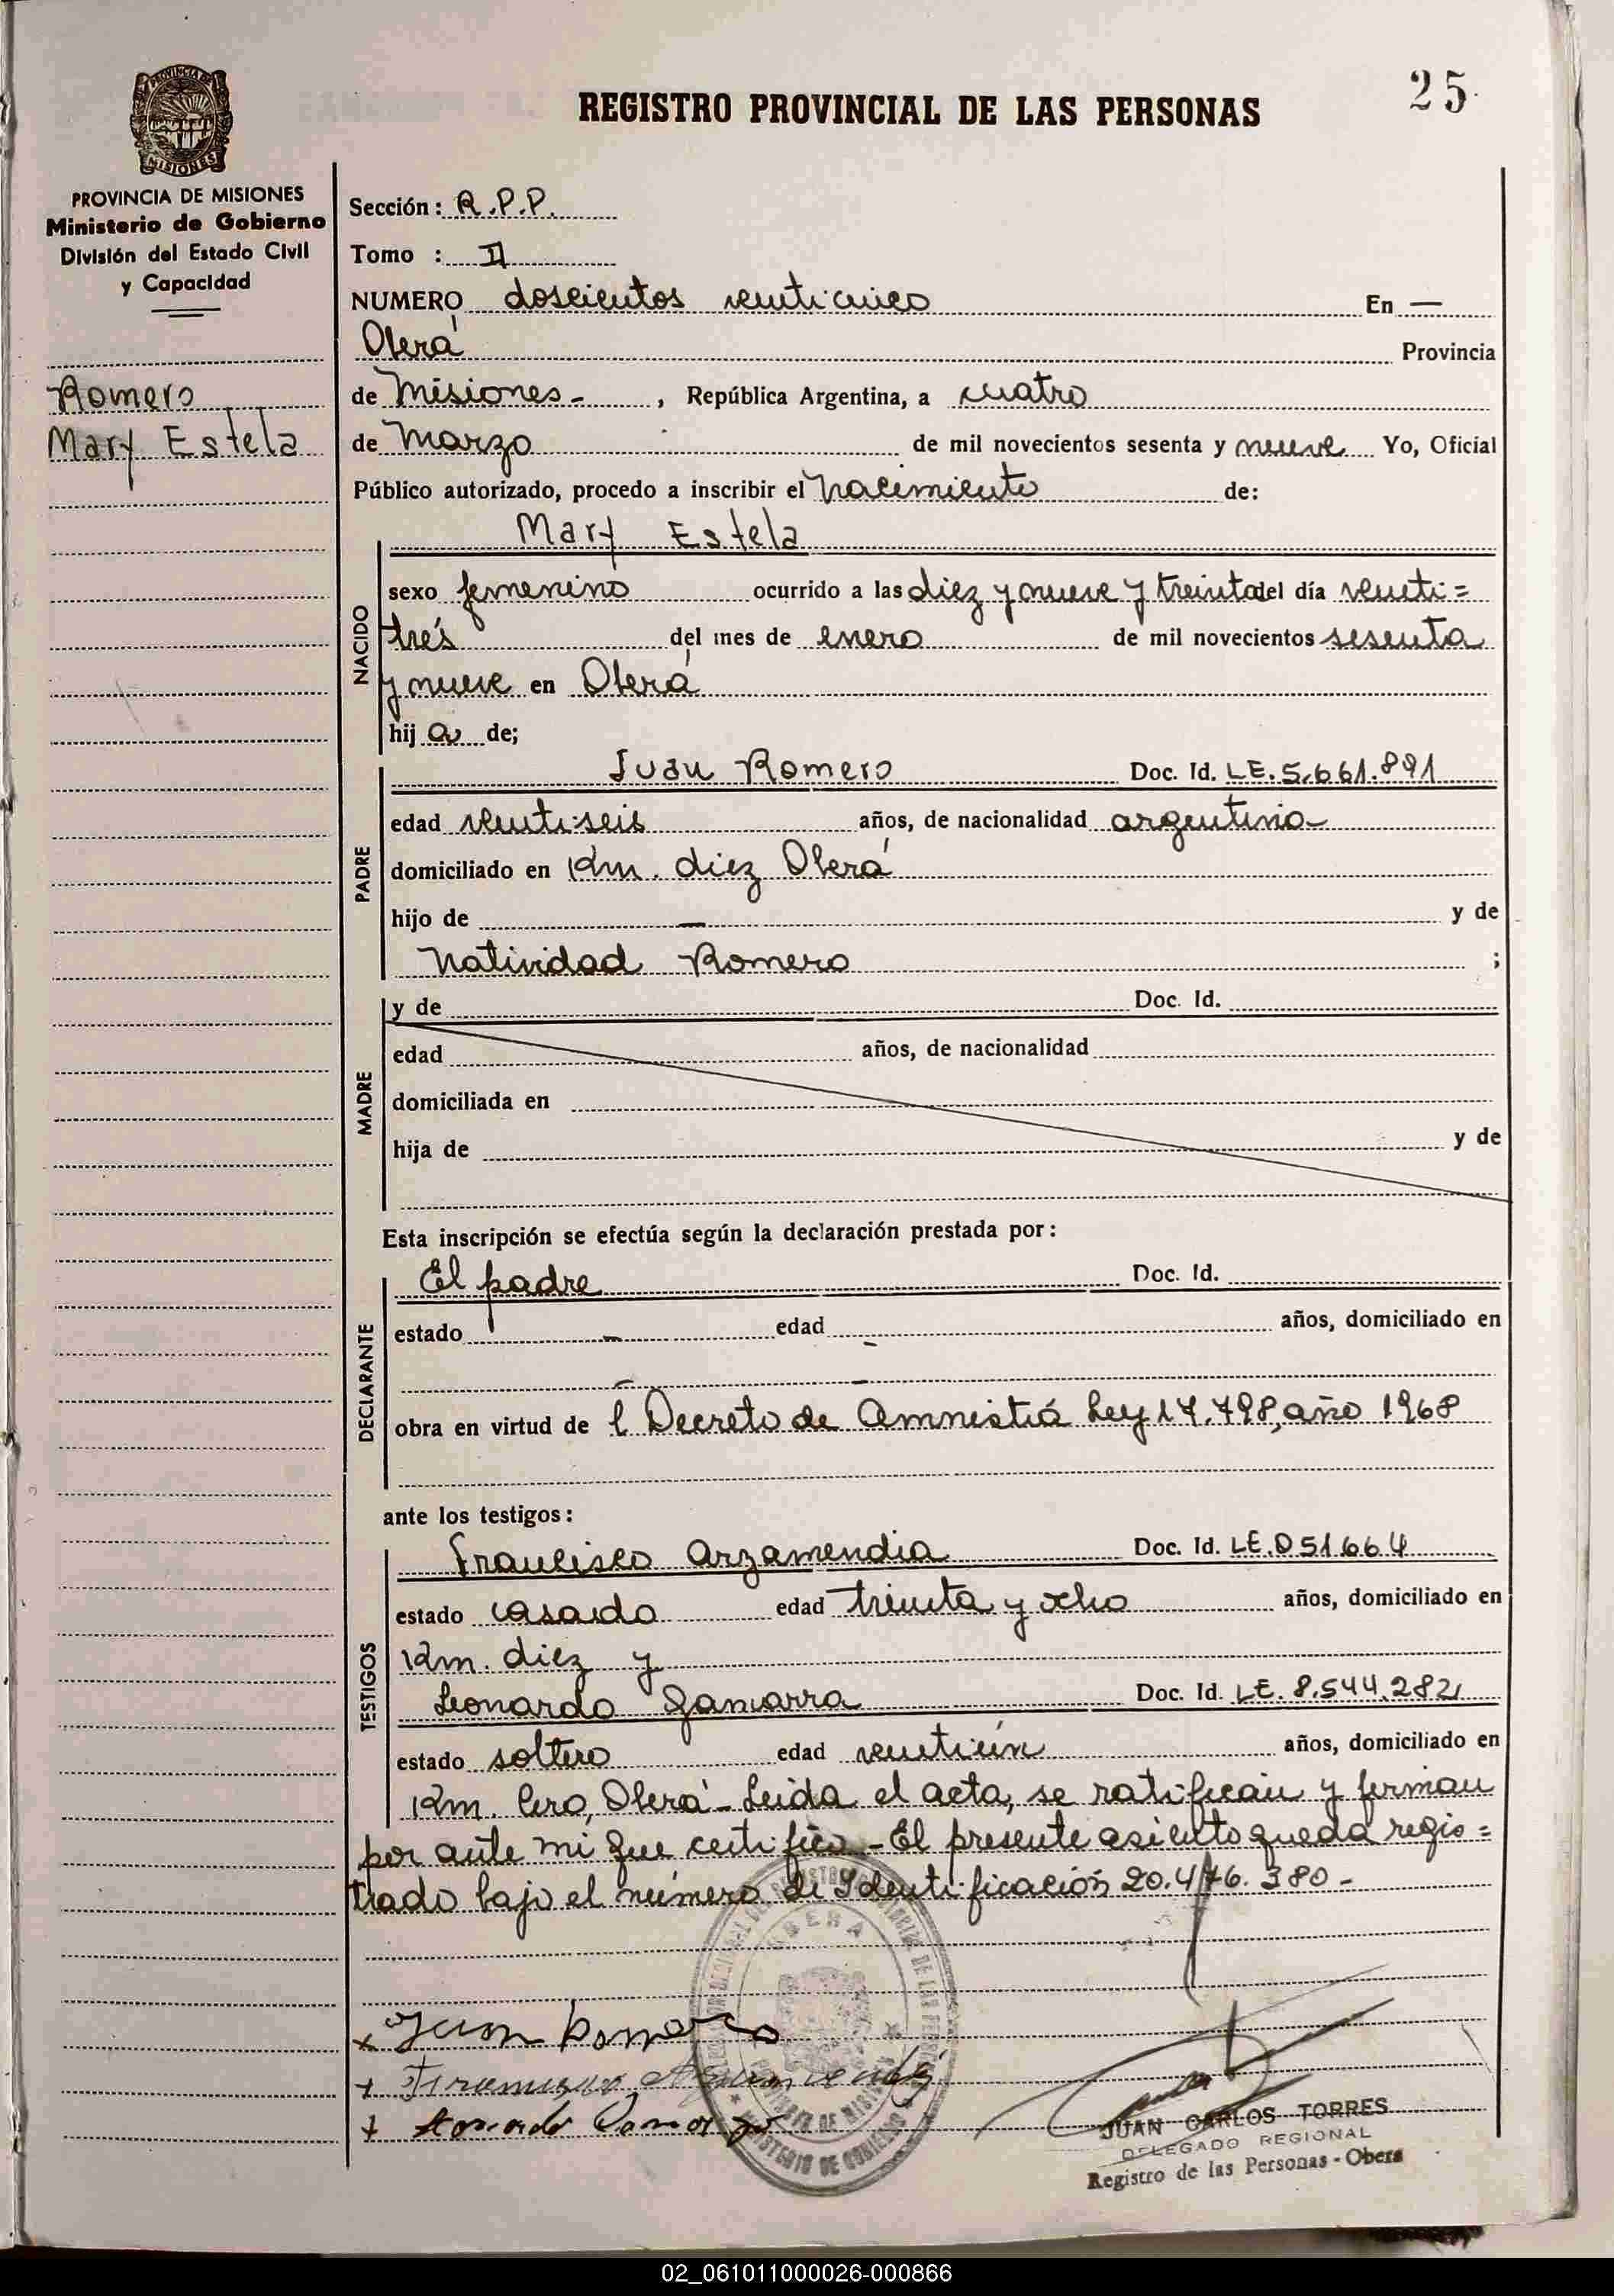 25
REGISTRO PROVINCIAL DE LAS PERSONAS
PROVINCIA DE MISIONES
Ministerio de Gobierno
División del Estado Civil
y Capacidad
Romero
Mary Estela
Sección: R.P.P.
Tomo : II
NUMERO doscientos veinticinco En —
Oberá Provincia
de Misiones- , República Argentina, a cuatro
de Marzo de mil novecientos sesenta y nueve Yo, Oficial
Público autorizado, procedo a inscribir el Nacimiento de:
Mary Estela
NACIDO
sexo femenino ocurrido a las diez y nueve y treinta del día veinti=
trés del mes de enero de mil novecientos sesenta
y nueve en Oberá
hij a de;
PADRE
Juan Romero Doc. Id. LE.5.661.891
edad veinti-seis años, de nacionalidad argentina
domiciliado en Km. diez Oberá
hijo de — y de
Natividad Romero ;
MADRE
y de Doc. Id.
edad años, de nacionalidad
domiciliada en
hija de y de
Esta inscripción se efectúa según la declaración prestada por:
DECLARANTE
El padre Doc. Id.
estado — edad - años, domiciliado en
— —
obra en virtud de l Decreto de Amnistiá Ley 17.798, año 1968
ante los testigos:
TESTIGOS
Francisco Arzamendia Doc. Id. LE.051664
estado casado edad treinta y ocho años, domiciliado en
Km. diez y
Leonardo Gamarra Doc. Id. LE. 8.544.282
estado soltero edad veintiún años, domiciliado en
Km. Cero, Oberá- Leida el acta, se ratifican y firman
por ante mi que certifico - El presente asiento queda regis=
trado bajo el número de Identificación 20.476.380-
OBERA
PROVINCIA DE MISIONES
MINISTERIO DE GOBIERNO
x Juan Romero
+
+
JUAN CARLOS TORRES
DELEGADO REGIONAL
Registro de las Personas - Obera
02_061011000026-000866